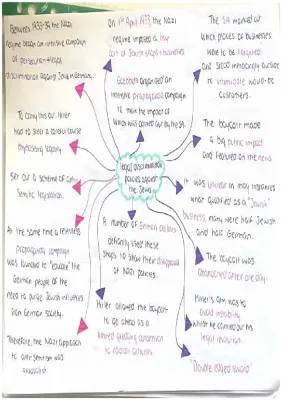 Between 1933-34 the Nazi
regime began an intensive campaign
of persecution + legal
discrimination against Jewish Germans.
To carry this out, Hitler
had to steer a careful course
emphasising legality.
Set out a scheme of anti-
Semitic legislation.
At the same time a relentless
propaganda campaign
was launched to "educate" the
German people of the
need to purge Jewish influences
from German society.
Therefore, the Nazi approach
to anti-semitism was
gradualist.
On 1st April 1933, the Nazi
regime imposed a
of Jewish shops + businesses
Goebbels organised an
intensive propaganda campaign
to the impact of
which was carried out by the SA.
legal discriminatory
policies against
the Jews
A number of German citizens
defiantly used these
shops to show their disapproval
of Nazi policies.
Hitler allowed the boycott
to go ahead as a
limited
to radical activists
The SA marked out
which places or businesses
were to be boycotted
and stood menacingly outside
to intimidate would-be
customers.
The boycott made
a big public impact
and featured on the news
It was unclear in many instances
what qualified as a "Jewish"
business, many were half Jewish
and half German.
The boycott was
abandoned after one day.
Hitler's aim was to
avoid instability
whilst he carried out his
legal revolution.
"Double edged sword"